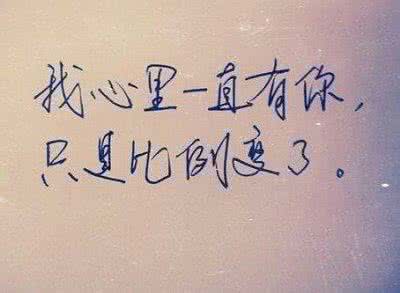 我心里一直有你，
只是比例变了。